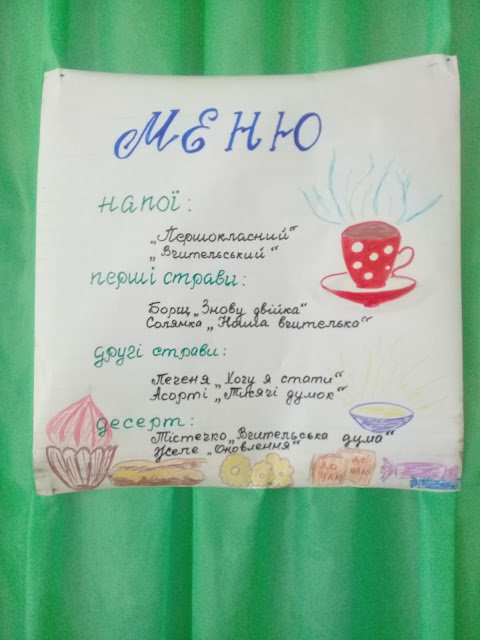 МЕНЮ
напої:
„Першокласний“
„Вчительський“
перші страви:
Борщ „Знову двійка“
Солянка „Наша вчителька“
другі страви:
Печеня „Хочу я стати“
Асорті „Тисячі думок“
десерт:
Тістечко „Вчительська дума“
Желе „Оновлення“
ДО ЧАЮ
ДО ЧАЮ